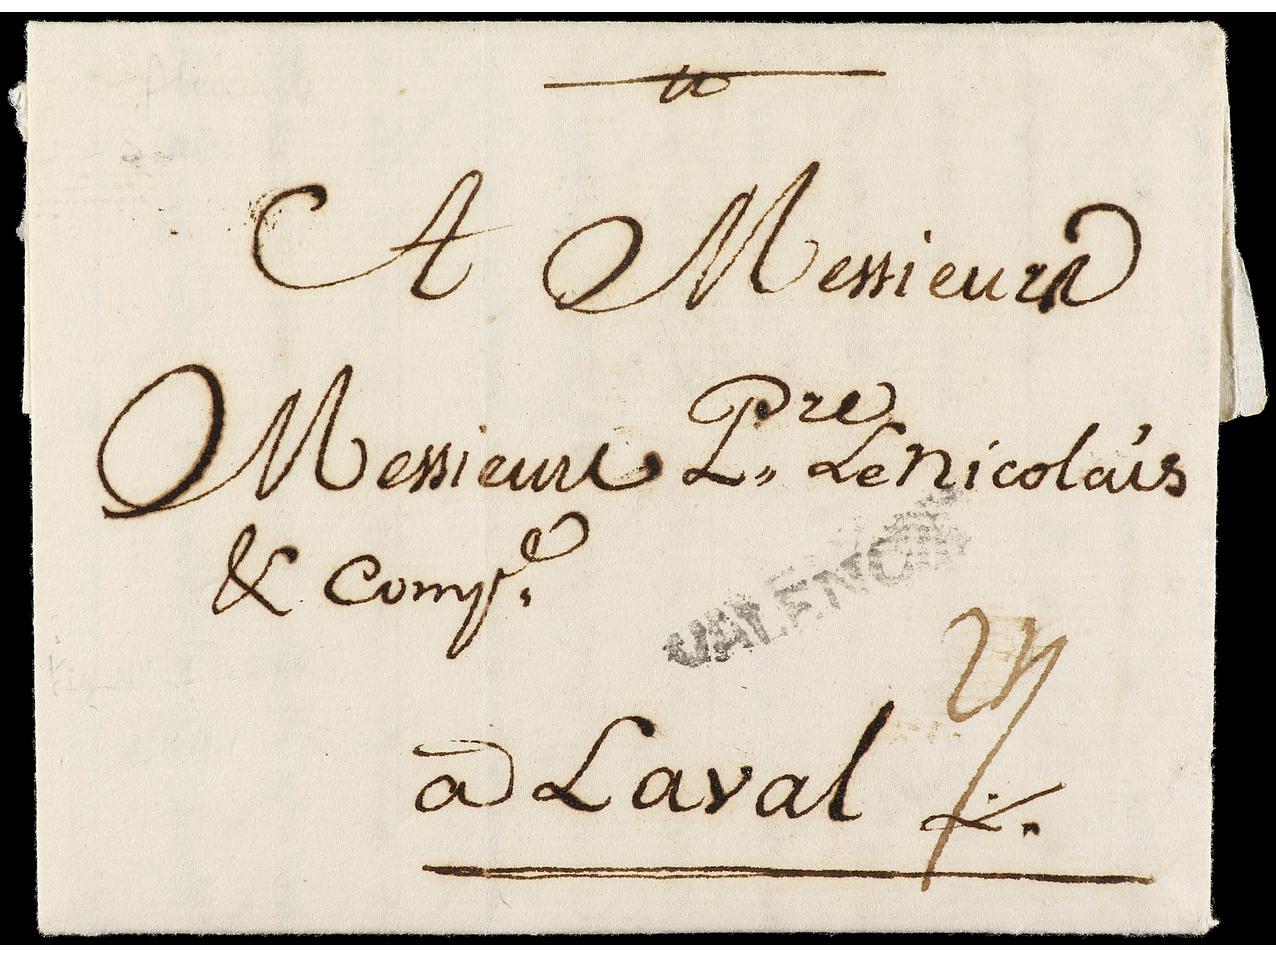 A Messieurs
Messieurs Pre L. Le Nicolais
& Compe.
VALENCIA
à Laval